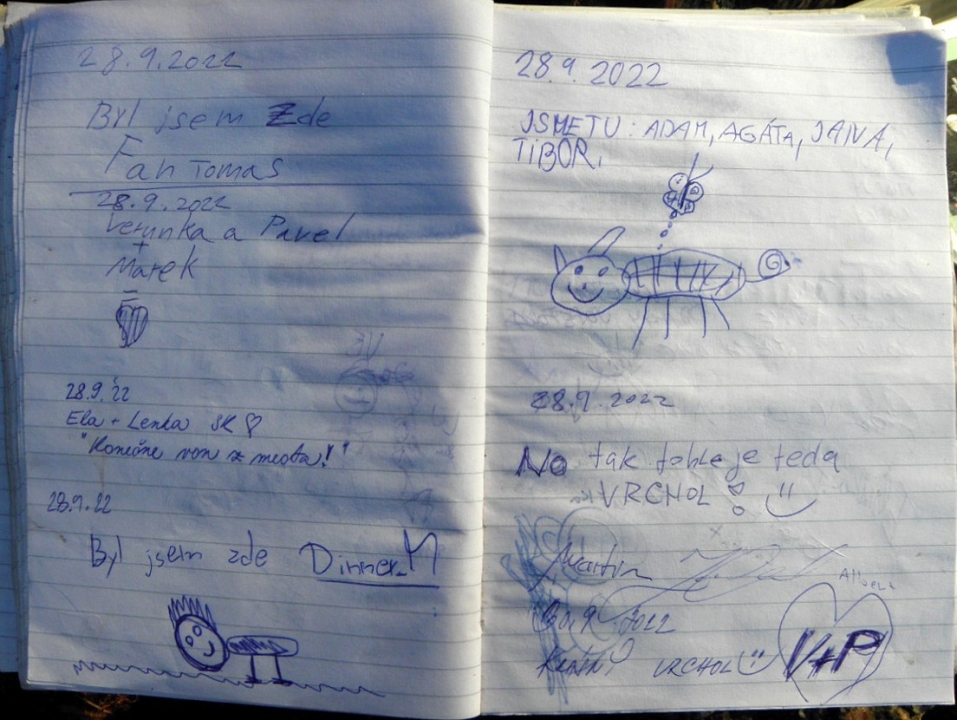 28.9.2022
Byl jsem Zde
Fan Tomas
28.9.2022
Verunka a Pavel
+
Marek
=
28.9.22
Ela + Lenka SK ♡
"Konečne von z mesta!"
28.9.22
Byl jsem zde Dinner_M
28.9.2022
JSME TU: ADAM, AGÁTA,
TIBOR,
28.9.2022
No tak tohle je teda
VRCHOL!
Martin
2022
VRCHOL
V+P